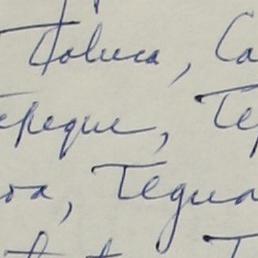 Toluca, Ca
epeque, Te
oa, Tegua